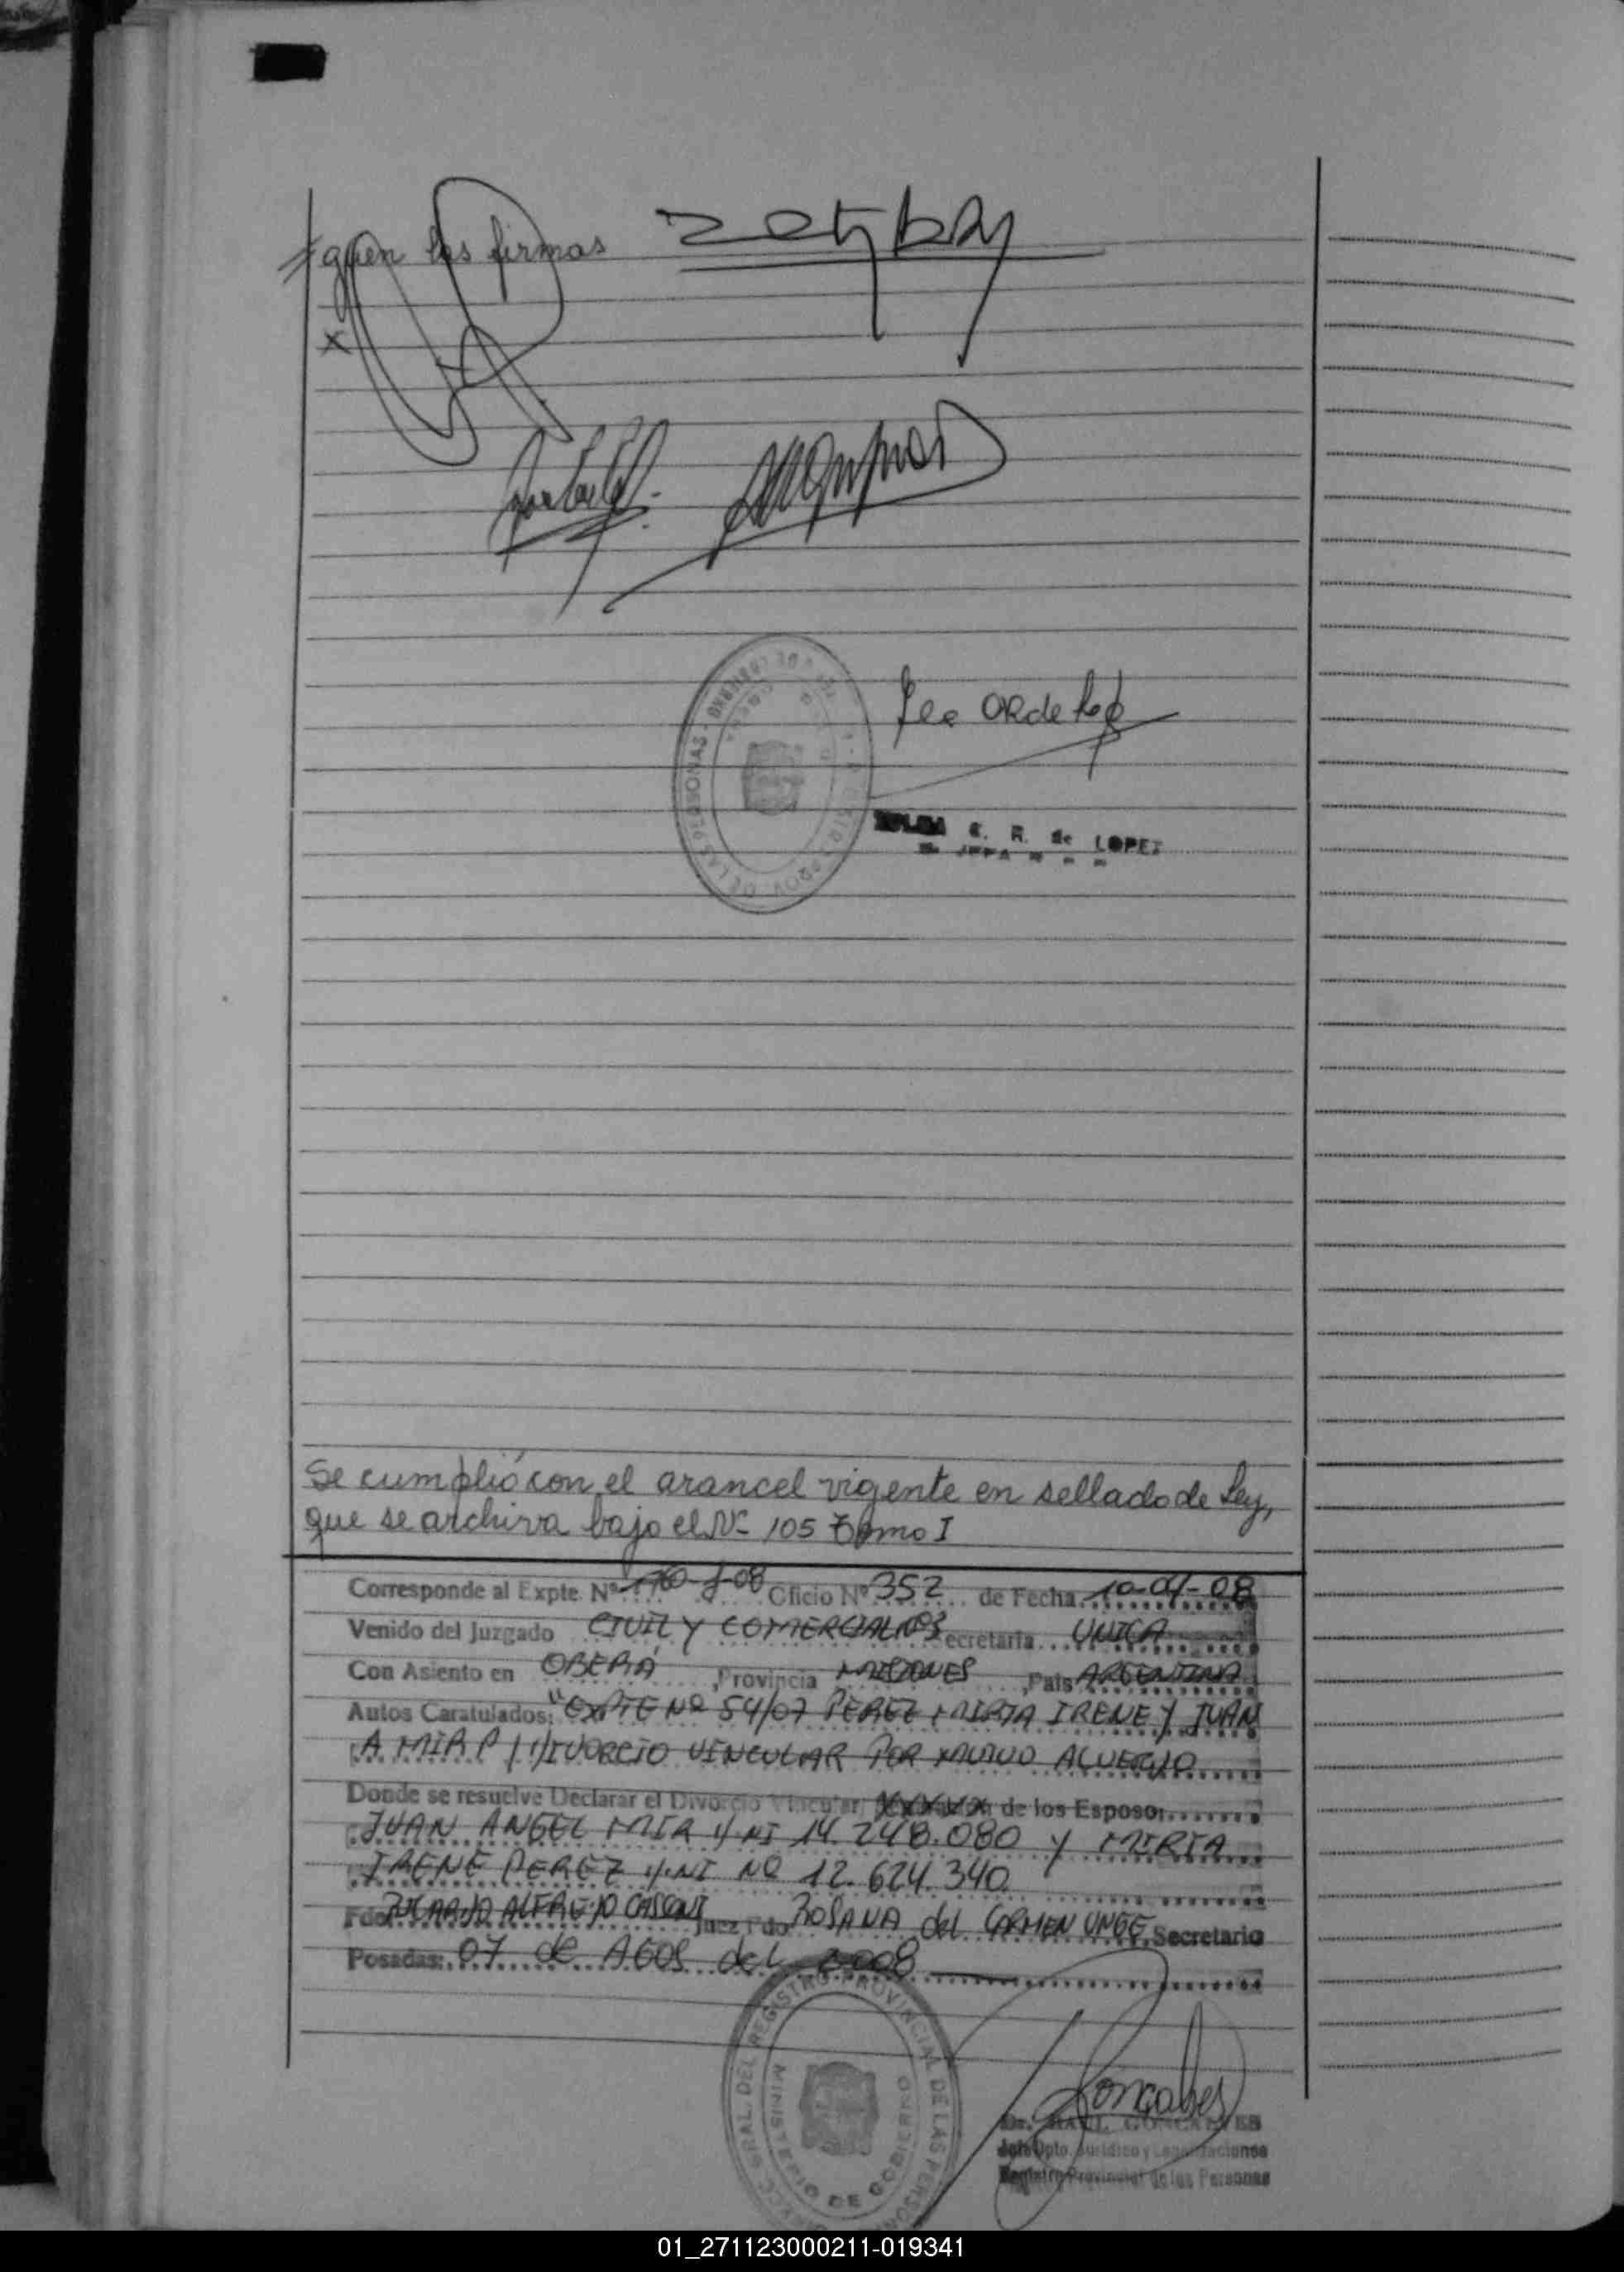 guen las firmas
x
DE LAS PERSONAS
PROV
E. R. de LOPEZ
JEFA
Se cumplió con el arancel vigente en sellado de Ley,
que se archiva bajo el Nº 105 Tomo I
Corresponde al Expte. Nº Oficio Nº 352 de Fecha
Venido del Juzgado CIVIL Y COMERCIAL Nº3 Secretaria UNICA
Con Asiento en OBERÁ, Provincia MISIONES, Pais ARGENTINA
Autos Caratulados: "EXPTE Nº 54/07 PEREZ MIRTA IRENE Y JUAN
A MIR P/ DIVORCIO VINCULAR POR MUTUO ACUERDO
Donde se resuelve Declarar el Divorcio Vincular de los Esposo
JUAN ANGEL MIR DNI 14.248.080 y MIRTA
IRENE PEREZ DNI Nº 12.624.340
Fdo. Juez Fdo. ROSANA del CARMEN Secretario
Posadas: 07 de AGOS del 2008
GRAL. DEL REGISTRO PROVINCIAL DE LAS PERSONAS
MINISTERIO DE GOBIERNO
Dr. RAUL GONCALVES
Jefe Dpto. Jurídico y
Registro Provincial de las Personas
01_271123000211-019341